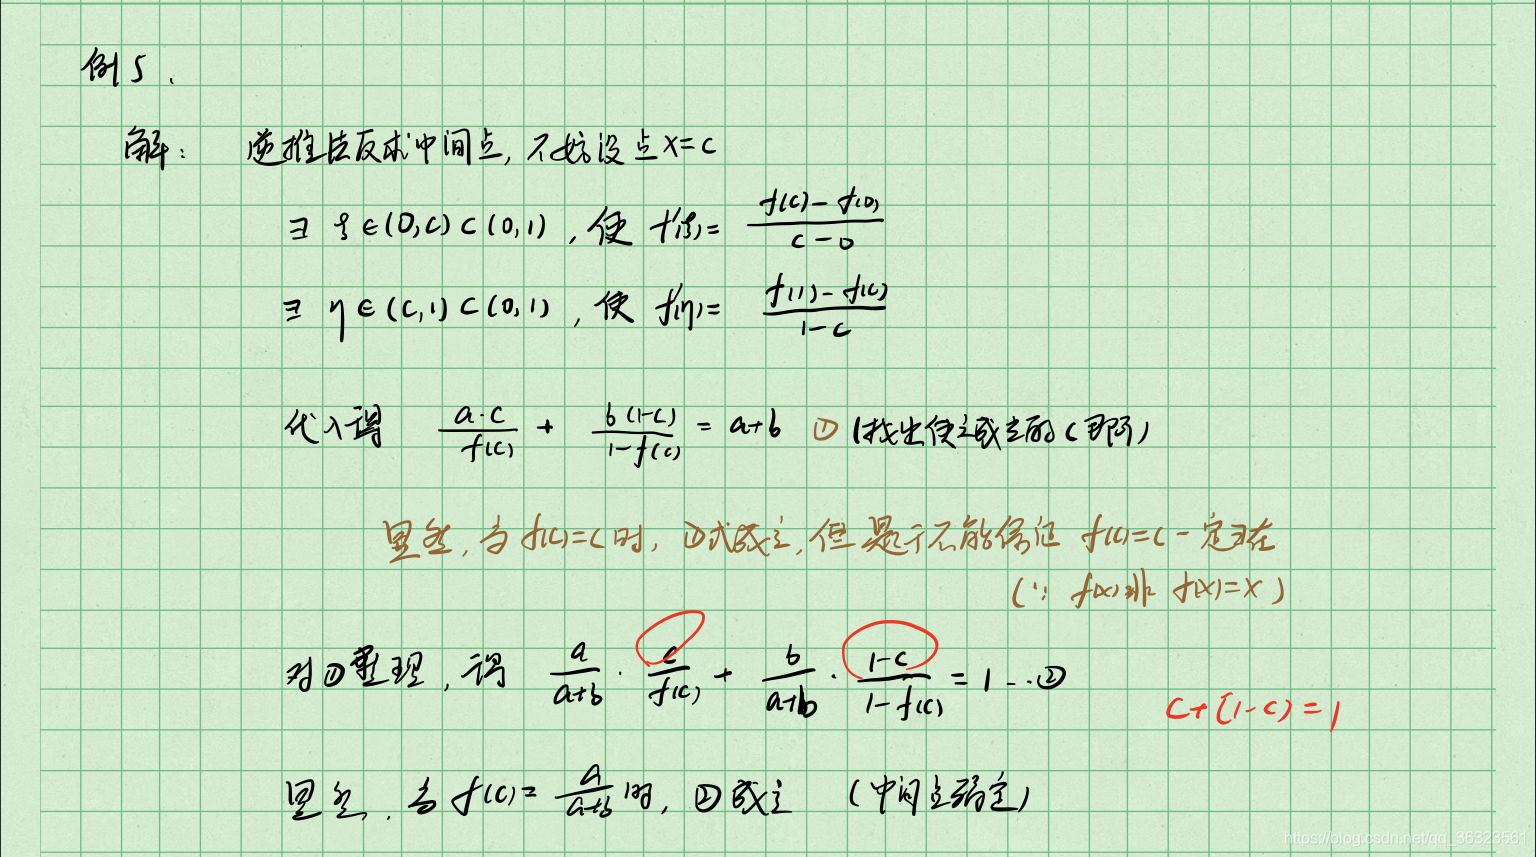 例5.
解: 逆推法反求中间点, 不妨设点x=c
∃ ξ∈(0,c)⊂(0,1), 使 f'(ξ)= \frac{f(c)-f(0)}{c-0}
∃ η∈(c,1)⊂(0,1), 使 f'(η)= \frac{f(1)-f(c)}{1-c}
代入得 \frac{a·c}{f(c)} + \frac{b(1-c)}{1-f(c)} = a+b ① (找出使之成立的c即可)
显然, 当f(c)=c时, ①式成立, 但是于不能保证 f(c)=c一定存在
(∵ f(x)非 f(x)=x)
对①整理, 得 \frac{a}{a+b} · \frac{c}{f(c)} + \frac{b}{a+b} · \frac{1-c}{1-f(c)} = 1 …②
c+(1-c)=1
显然, 当f(c)= \frac{a}{a+b} 时, ②成立 (中间点确定)
https://blog.csdn.net/qq_36323561